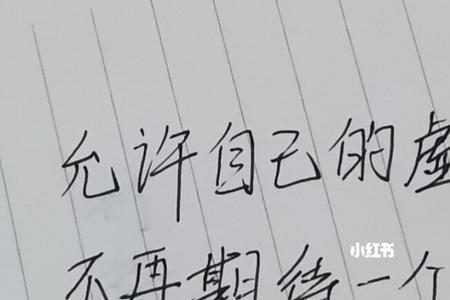 允许自己的虚
不再期待一个
小红书